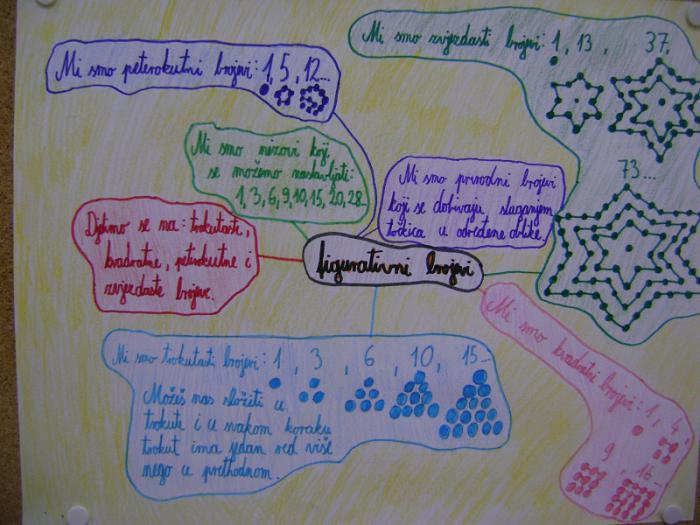 Mi smo zvjezdasti brojevi: 1, 13, 37,
73...
Mi smo peterokutni brojevi: 1, 5, 12...
Mi smo nizovi koji
se možemo nastavljati:
1, 3, 6, 9, 10, 15, 20, 28
Mi smo prirodni brojevi
koji se dobivaju slaganjem
točkica u određene oblike.
Djelimo se na: trokutaste,
kvadratne, peterokutne i
zvjezdaste brojeve.
figurativni brojevi
Mi smo trokutasti brojevi: 1, 3, 6, 10, 15...
Možeš nas složiti u
trokute i u svakom koraku
trokut ima jedan red više
nego u prethodnom.
Mi smo kvadratni brojevi: 1, 4,
9, 16...